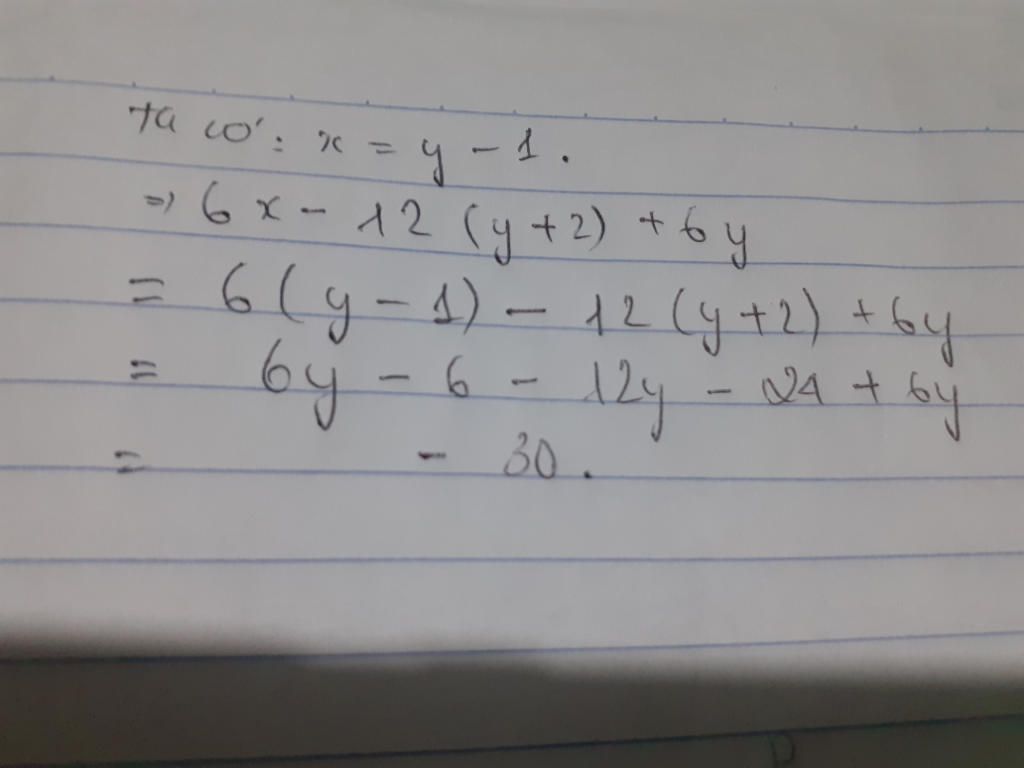 ta có: x = y - 1.
=> 6x - 12 (y + 2) + 6y
= 6(y - 1) - 12(y+2) + 6y
= 6y - 6 - 12y - 24 + 6y
= - 30.